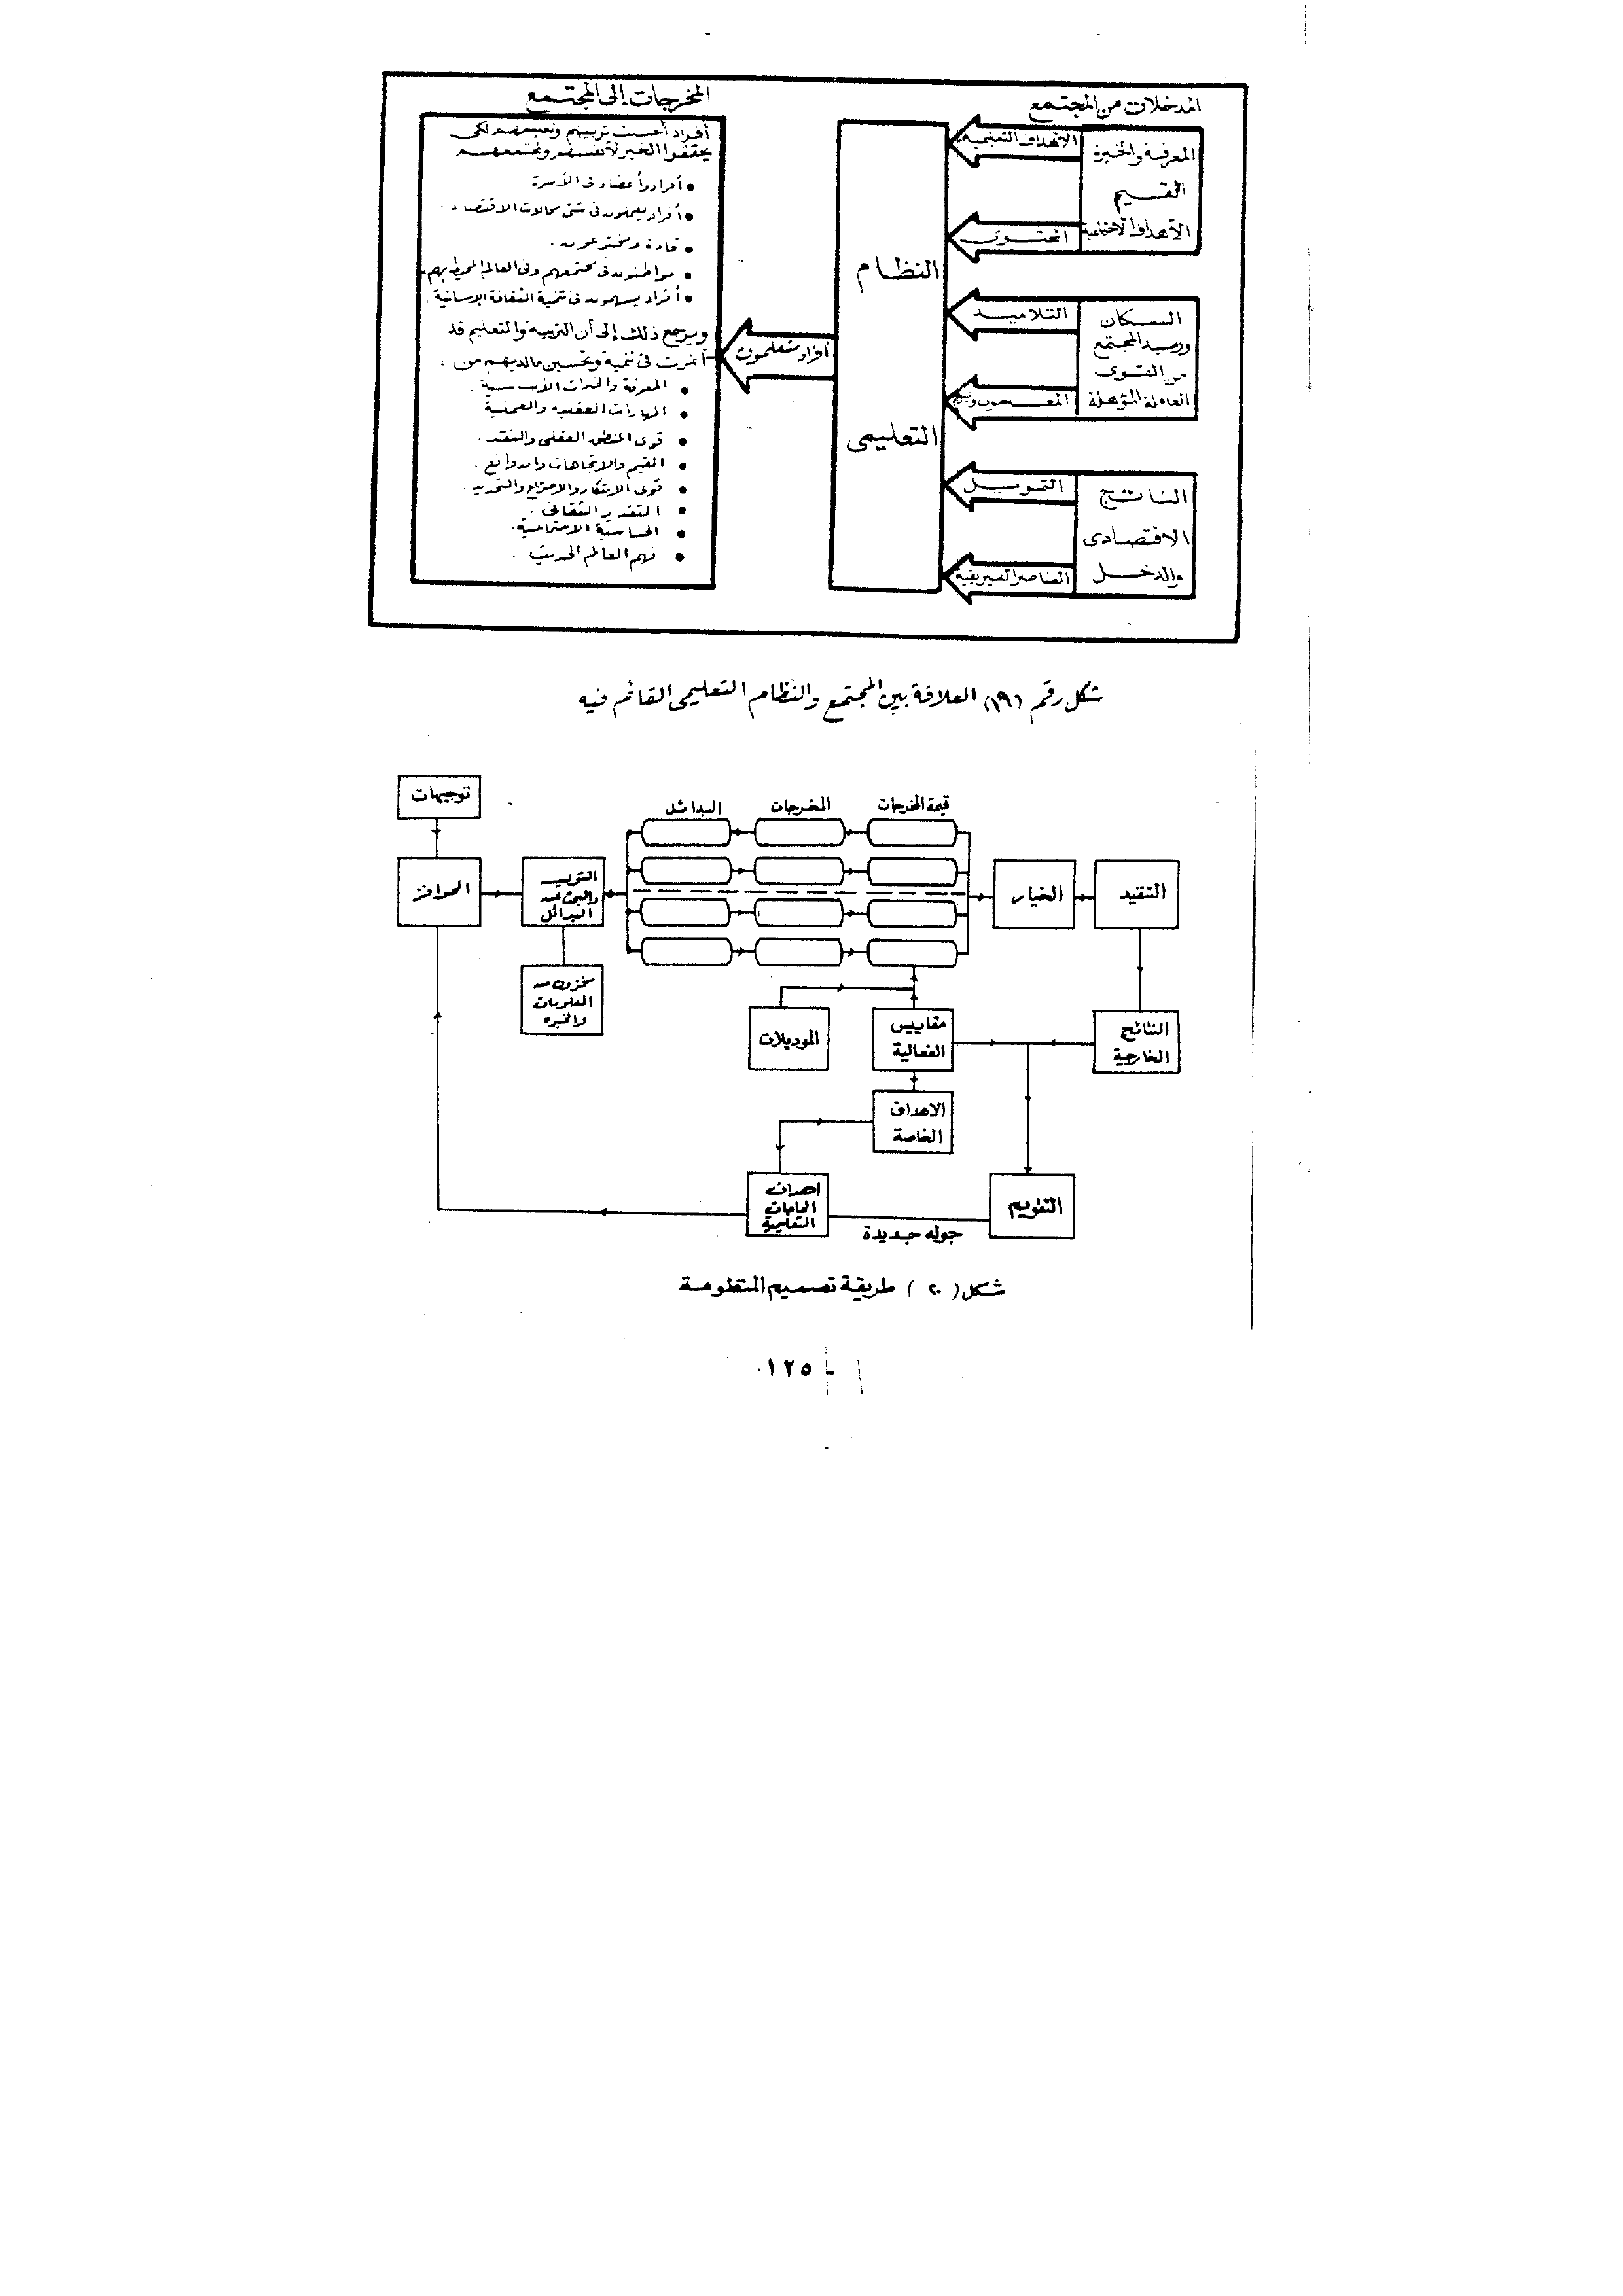 المدخلات من المجتمع
المعرفة والخبرة
القيم
الأهداف الاجتماعية
الأهداف التعليمية
المحتوى
السكان
ورصيد المجتمع
من القوى
العاملة المؤهلة
التلاميذ
الناتج
الاقتصادى
والدخل
التمويل
العناصر الفيزيقية
النظام
التعليمى
أفراد متعلمون
المخرجات إلى المجتمع
أفراد أحسنت تربيتهم وتعليمهم لكى
يحققوا الخير لأنفسهم ولمجتمعهم
• أفراد وأعضاء فى الأسرة .
• أفراد يعملون فى شتى مجالات الاقتصاد .
• قادة ومخترعون .
• مواطنون فى مجتمعهم وفى العالم المحيط بهم .
• أفراد يسهمون فى تنمية الثقافة الإنسانية .
ويرجع ذلك إلى أن التربية والتعليم قد
أثمرت فى تنمية وتحسين مالديهم من :
• المعرفة والأساسية .
• المهارات العقلية والعملية
• قوى المنطق العقلى والنقد .
• القيم والاتجاهات والدوافع .
• قوى الابتكار والاختراع والتجديد .
• التقدير الثقافى .
• الحساسية الاجتماعية .
• فهم العالم الحديث .
شكل رقم (١٩) العلاقة بين المجتمع والنظام التعليمى القائم فيه
توجيهات
قيمة المخرجات
المخرجات
البدائل
الحوافز
البدائل
الخيار
التنفيذ
مخزون من
المعلومات
والخبره
الموديلات
مقاييس
الفعالية
النتائج
الخارجية
الاهداف
الخاصة
اهداف
الحاجات
التعليمية
جوله جديدة
التقويم
شكل ( ٢٠ ) طريقة تصميم المنظومة
١٢٥ -